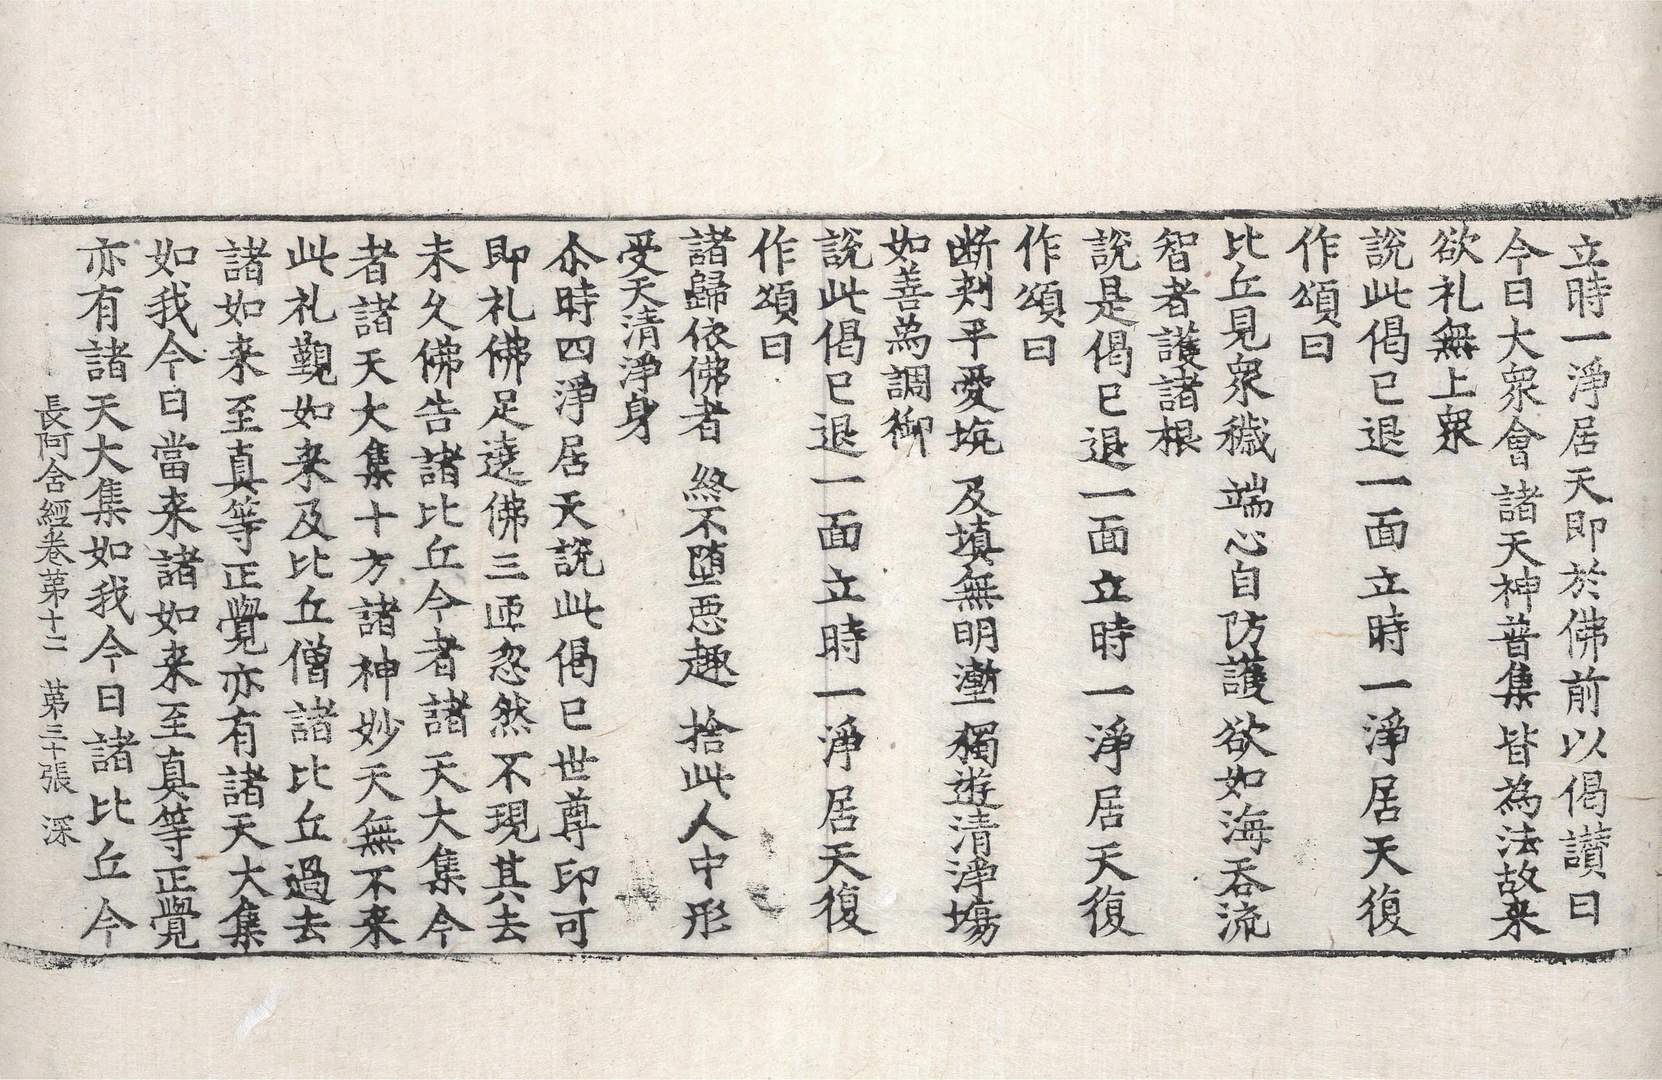 立時一淨居天即於佛前以偈讃曰
今日大衆會 諸天神普集 皆為法故来
欲礼無上衆
說此偈已退一面立時一淨居天復
作頌曰
比丘見衆穢 端心自防護 欲如海吞流
智者護諸根
說是偈已退一面立時一淨居天復
作頌曰
断刾平愛坑 及填無明壍 獨遊清淨場
如善為調御
說此偈已退一面立時一淨居天復
作頌曰
諸歸依佛者 終不墮惡趣 捨此人中形
受天清淨身
尒時四淨居天說此偈已世尊印可
即礼佛足遶佛三匝忽然不現其去
未久佛告諸比丘今者諸天大集今
者諸天大集十方諸神妙天無不来
此礼覲如来及比丘僧諸比丘過去
諸如来至真等正覺亦有諸天大集
如我今日當来諸如来至真等正覺
亦有諸天大集如我今日諸比丘今
長阿含經卷第十二 第三十張 深